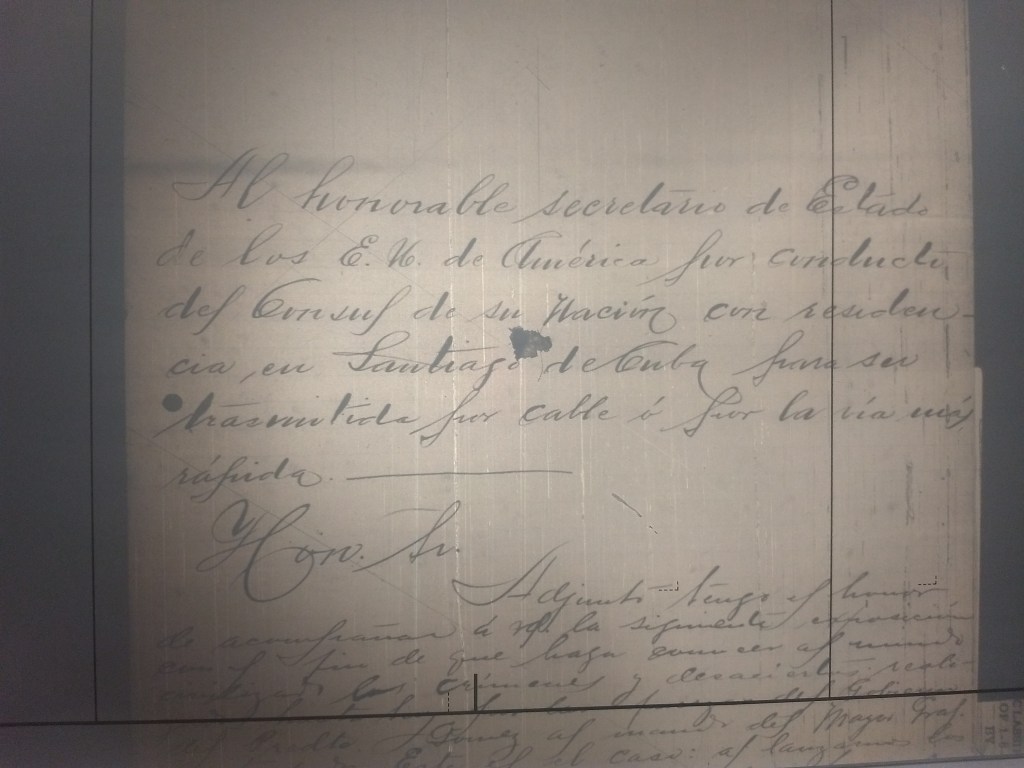 Al honorable secretario de Estado
de los E. U. de América por conducto
del Consul de su Nación con residen-
cia, en Santiago de Cuba para ser
trasmitida por cable ó por la vía más
rápida.
Hon. Sr.
Adjunto tengo el honor
de acompañar á vd la siguiente exposición
con el fin de que haga conocer al mundo
los crimenes y desaciertos reali-
del Gobierno
al mando del Mayor Gral.
el caso: al lanzarnos